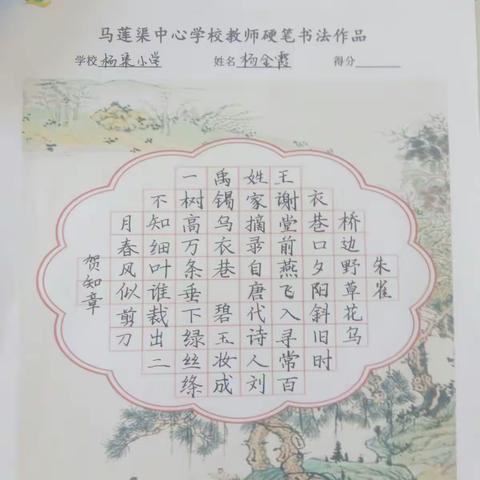 马莲渠中心学校教师硬笔书法作品
学校 杨渠小学 姓名 杨金霞 得分
朱雀
桥边野草花乌
衣巷口夕阳斜旧时
王谢堂前燕飞入寻常百
姓家摘录自唐代诗人刘
禹锡乌衣巷 碧玉妆成
一树高万条垂下绿丝绦
不知细叶谁裁出二
月春风似剪刀
贺知章